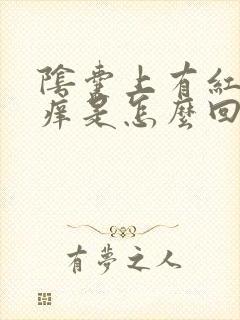 陰囊上有紅
痒是怎麼回
有夢之人